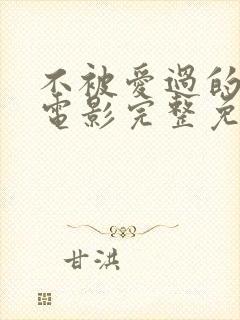 不被愛過的
電影完整免
甘洪